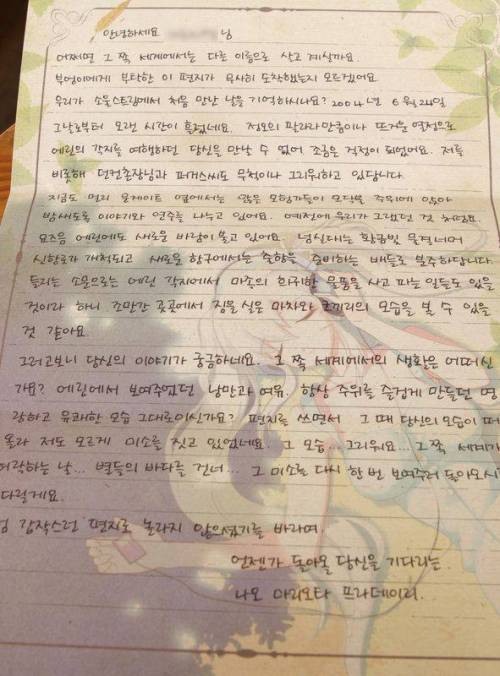 안녕하세요 님
어쩌면 그 쪽 세계에서는 다른 이름으로 살고 계실까요.
부엉이에게 부탁한 이 편지가 무사히 도착했는지 모르겠어요
우리가 소울스트림에서 처음 만난 날을 기억하시나요? 2004년 6월 24일
그날로부터 오랜 시간이 흘렀네요. 정오의 팔라라만큼이나 뜨거운 열정으로
에린의 각지를 여행하던 당신을 만날 수 없어 조금은 걱정이 되었어요. 저를
비롯해 던컨촌장님과 퍼거스씨도 무척이나 그리워하고 있답니다
지금도 멀리 문게이트 옆에서는 많은 모험가들이 모닥불 주위에 앉아
밤새도록 이야기와 연주를 나누고 있어요. 예전에 우리가 그랬던 것 처럼요.
요즈음 에린에도 새로운 바람이 불고 있어요. 넘실대는 황금빛 물결너머
신항로가 개척되고 새로운 항구에서는 출항을 준비하는 배들로 분주하답니다.
들리는 소문으로는 에린 각지에서 마족의 희귀한 물품을 사고 파는 일들도 있을
것이라 하니 조만간 곳곳에서 짐을 실은 마차와 코끼리의 모습을 볼 수 있을
것 같아요.
그러고보니 당신의 이야기가 궁금하네요. 그 쪽 세계에서의 생활은 어떠신
가요? 에린에서 보여주었던 낭만과 여유. 항상 주위를 즐겁게 만들던 명
랑하고 유쾌한 모습 그대로이신가요? 편지를 쓰면서 그 때 당신의 모습이 떠
올라 저도 모르게 미소를 짓고 있었네요. 그 모습... 그리워요... 그 쪽 세계가
허락하는 날... 별들의 바다를 건너... 그 미소를 다시 한 번 보여주러 돌아오시
다릴게요.
갑작스런 편지로 놀라지 않으셨기를 바라며.
언젠가 돌아올 당신을 기다리는.
나오 마리오타 프라데이리.